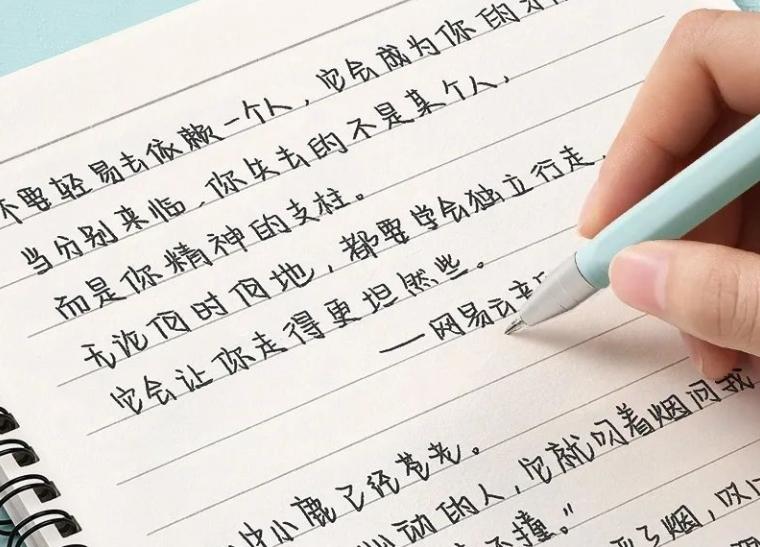 不要轻易去依赖一个人，它会成为你的
当分别来临，你失去的不是某个人，
而是你精神的支柱。
无论何时何地，都要学会独立行走，
它会让你走得更坦然些。
——网易云音
小鹿已经苍老。
动的人，它就叼着烟问我
不撞。”
了烟，